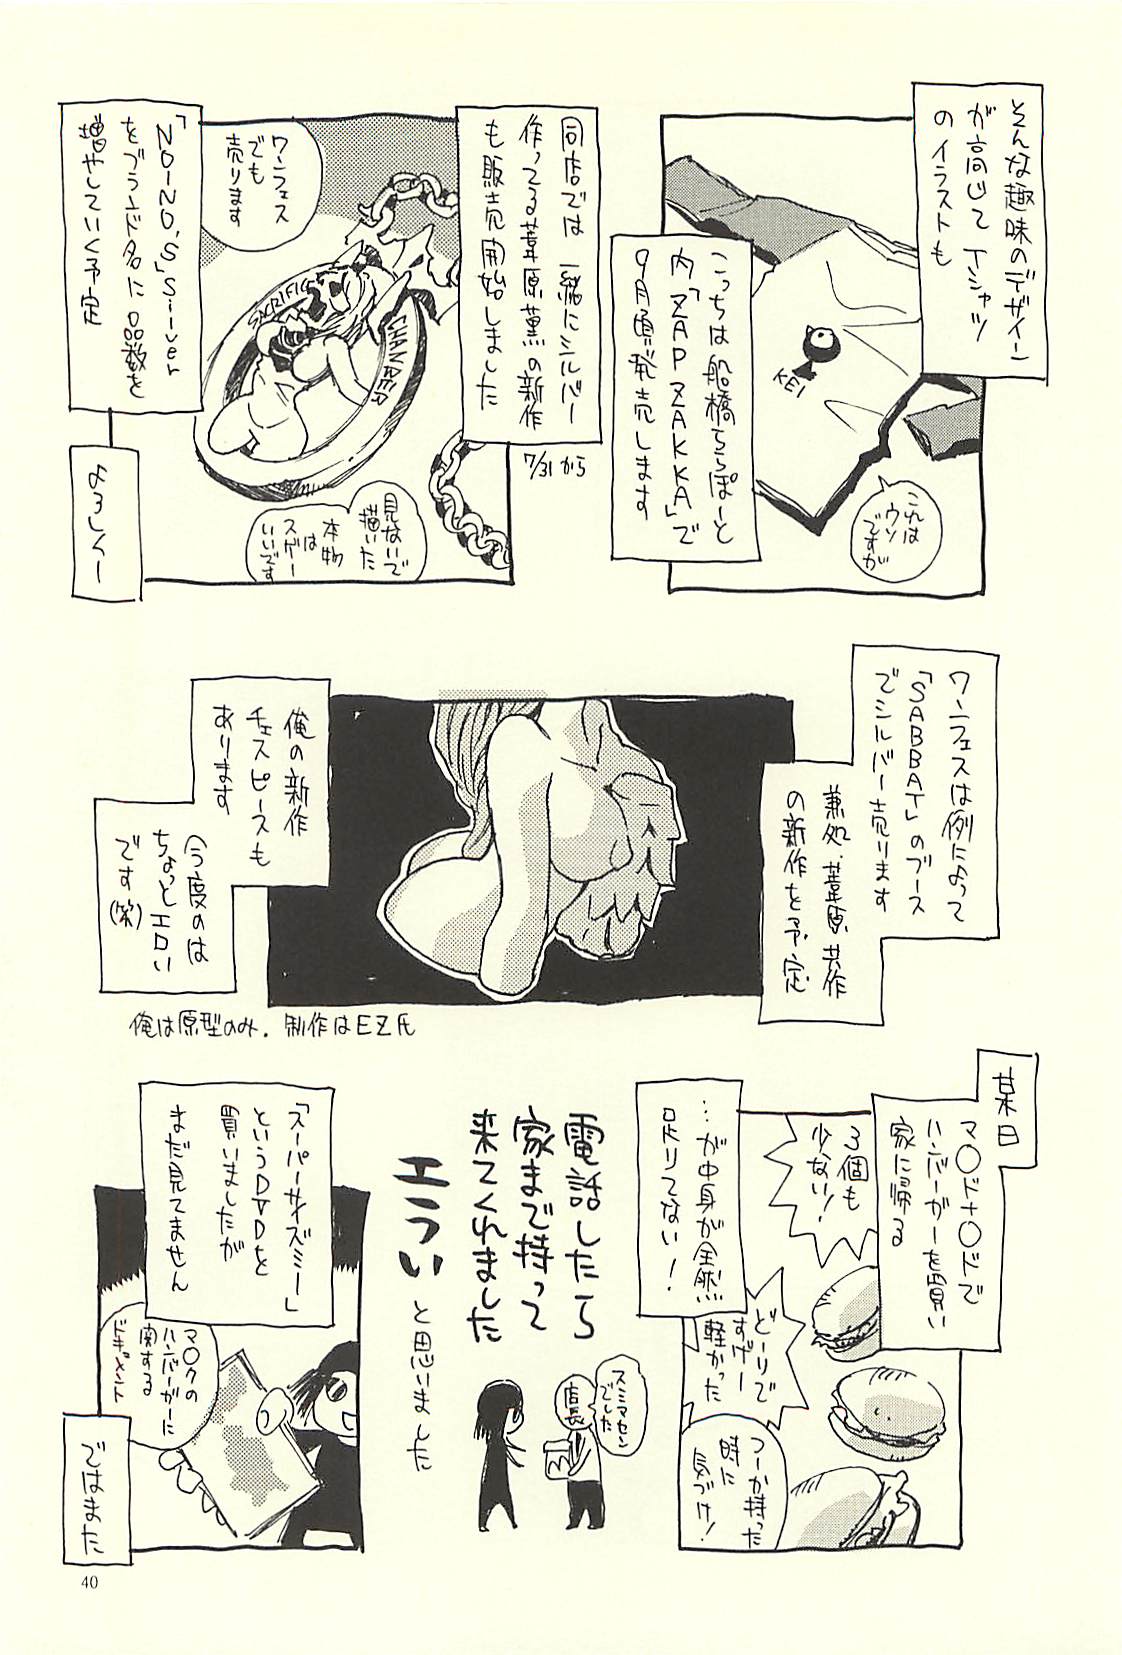 そんな趣味のデザイン
が高じてTシャツ
のイラストも
KEI
これは
ウソ
ですが
こっちは船橋ららぽーと
内「ZAP ZAKKA」で
9月頃発売します
同店では一緒にシルバー
作ってる葦原薫の新作
も販売開始しました
7/31から
ワンフェス
でも
売ります
SACRIFICE
CHAMBER
見ないで
描いた
本物
は
スゲー
いいです
「NO-NO,S」Silver
をブランド名に品数を
増やしていく予定
よろしくー
ワンフェスは例によって
「SABBAT」のブース
でシルバー売ります
兼処・葦原共作
の新作を予定
俺の新作
チェスピースも
あります
今度のは
ちょっとエロい
です(笑)
俺は原型のみ.制作はEZ氏
某日
マ○ド+○ドで
ハンバーガーを買い
家に帰る
3個も
少ない!
…が中身が全然
足りてない!
どーりで
すげー
軽かった
つーか持った
時に
気づけ!
電話したら
家まで持って
来てくれました
エラい
と思いました
スミマセン
でした
店長
「スーパーサイズミー」
というDVDを
買いましたが
まだ見てません
マ○クの
ハンバーガーに
関する
ドキュメント
ではまた
40